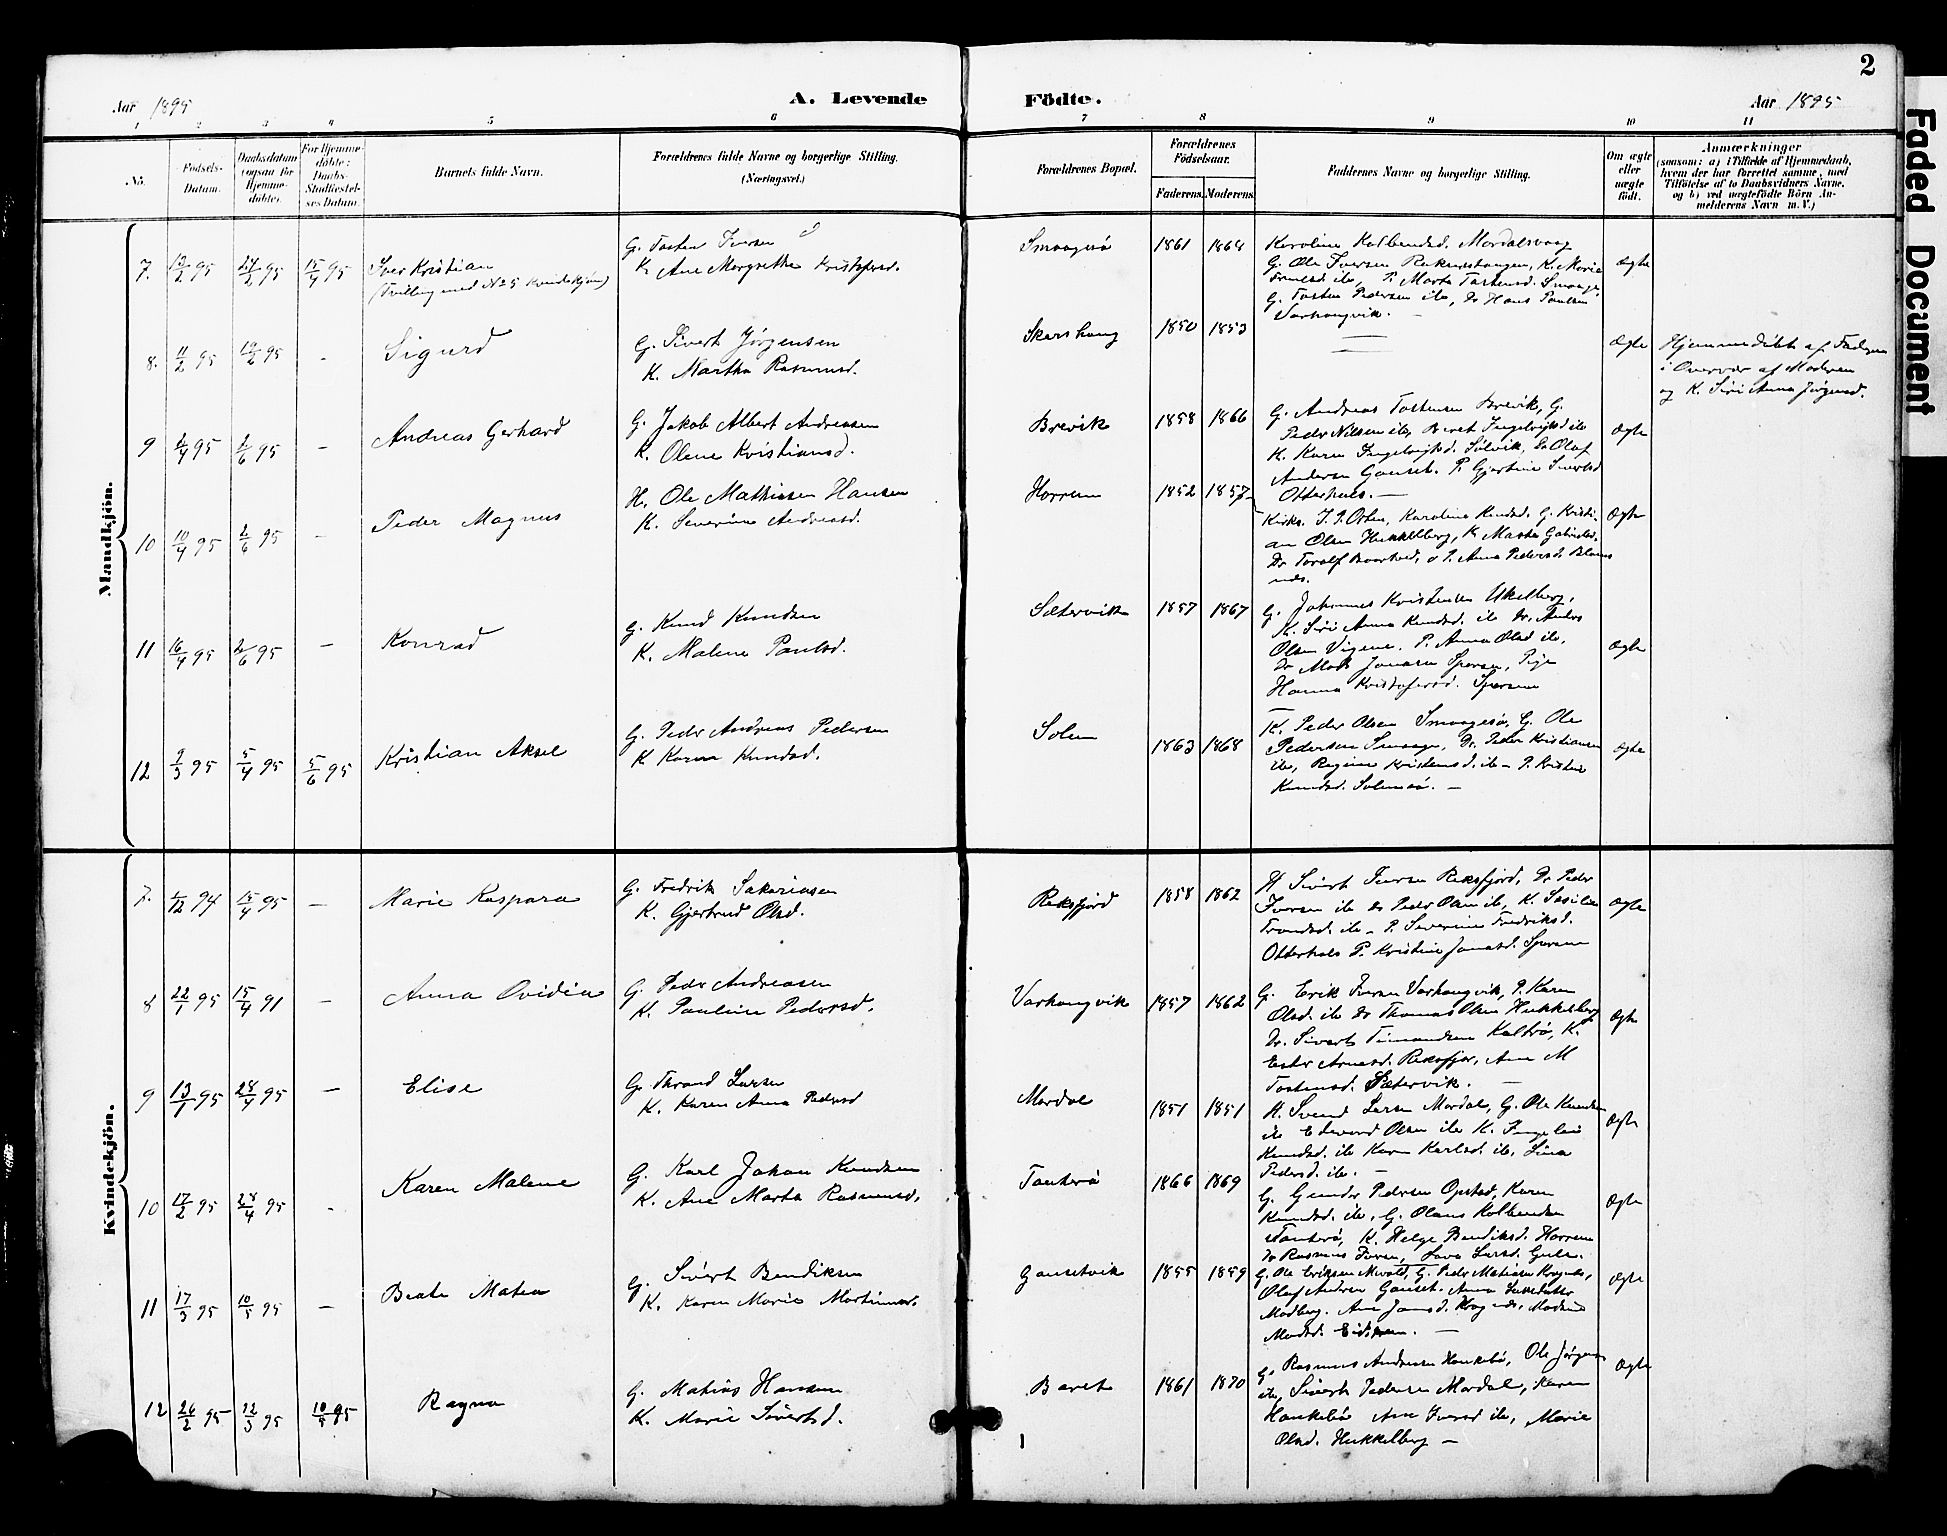 2
Aar 1895
A. Levende Födte.
Aar 1895
1 2 3 4 5 6 7 8 9 10 11
No.
Fødsels-Datum.
Daabsdatum (ogsaa for Hjemme-døbte).
For Hjemme-døbte: Daabs-Stadfæstelses Datum.
Barnets fulde Navn.
Forældrenes fulde Navne og borgerlige Stilling. (Næringsvei.)
Forældrenes Bopæl.
Forældrenes Fødselsaar.
Faderens. Moderens.
Faddernes Navne og borgerlige Stilling.
Om ægte eller uægte født.
Anmærkninger
(saasom: a) i Tilfælde af Hjemmedaab, hvem der har forrettet samme, med Tilføielse af to Daabsvidners Navne, og b) ved uægtefødte Børn Anmelderens Navn m. V.)
Mandkjön.
7. 95 95 15/4 95 Iver Kristian
(Tvilling med No 5 Kvindekjøn)
G. Tosten Iversen
K. Ane Margrethe Kristofersd.
Smaagesø 1861 1864
Karoline Kolbensd. Mordalsvaag
G. Ole Iversen K. Marie
ib, P. Marta Tostensd. Smaage
G. Tosten Pedersen ib, Hans Paulsen
Varhaugvik.
Ægte
8. 11/2 95 95 - Sigurd
G. Sivert Jørgensen
K. Martha Rasmusd.
Skarshaug 1850 1853
Ægte
Hjemmedøbt af Faderen
i Overvær af Moderen
og K. Siri Anna Jørgensd.
9 95 95 - Andreas Gerhard
G. Jakob Albert Andreasen
K. Olene Kristiansd.
Brevik 1858 1866
G. Andreas Tostensen Brevik, G.
Peder Nilsen ib, Beret Ingebrigtsd ib
K. Karen Ingebrigtsd. Sølvik, Dr Olaf
Andersen Gauset. P. Gjertine Sivertsd
Otterhals.
Ægte
10 10/4 95 2/6 95 - Peder Magnus
H. Ole Mathisen Hansen
K. Severine Andreasd.
Horrem 1852 1857
Kirks. Karoline Knudsd. G. Kristian
Olsen Hukkelberg, K. Marta Gabrielsd.
Dr Toralf P. Anna Pedersd.
Ægte
11 16/4 95 2/6 95 - Konrad
G. Knud Knudsen
K. Malene Paulsd.
Sætervik 1857 1867
G. Johannes Kristensen Ukelberg,
K. Siri Anna Knudsd. ib Dr. Anders
Olsen Vigene. P. Anna Olsd ib,
Dr Mads Jonasen Sporsem, Pige
Hanna Kristofersd. Sporsem
Ægte
12 95 5/4 95 5/6 95 Kristian Aksel
G. Peder Andreas Pedersen
K. Karen Knudsd.
Solem 1863 1868
K. Peder Olsen Smaagesø, G. Ole
Pedersen Smaage, Dr. Peder Kristiansen
ib, Regine Kristensd. ib - P. Kristine
Knudsd. Solemsø.
Ægte
Kvindekjön.
7. 94 15/4 95 - Marie Kaspara
G. Fredrik Sakariasen
K. Gjertrud Olsd.
Reksfjord 1858 1862
H Sivert Iversen Reksfjord, Dr Peder
Iversen ib Dr Peder Olsen ib, K. Sesilie
Trondsd. ib - P. Severine Fredriksd.
Otterhals P. Kristine Jonasd. Sporsem
Ægte
8 22/1 95 15/4 91 - Anna Ovidia
G. Peder Andreasen
K. Pauline Pedersd.
Varhaugvik 1857 1862
G. Erik Iversen Varhaugvik, P. Karen
Olsd. ib Dr Thomas Olsen Hukkelberg
Dr. Sivert K.
Ester Arnesd. Reksfjor, Ane M
Tostensd. Sætervik.
Ægte
9 13/1 95 28/4 95 - Elise
G. Thrond Larsen
K. Karen Anna Pedersd
Mordal 1851 1851
H. Svend Larsen Mordal, G. Ole Knudsen
ib Edvard Olsen ib K. Ingeleiv
Knudsd. ib Karen Karlsd. ib, Lina
Pedersd. ib.
Ægte
10 17/2 95 28/4 95 - Karen Malene
G. Karl Johan Knudsen
K. Ane Marta Rasmusd.
Tauterø 1866 1869
G. Gunder Pedersen Opstad, Karen
Knudsd. ib, G. Olaus Kolbensen
Tauterø, K. Helge Bendiksd. Horrem
Dr Rasmus Iversen, Larsd.
Ægte
11 17/3 95 10/5 95 - Beate Matea
G. Sivert Bendiksen
K. Karen Marie Martinusd.
Gausetvik 1855 1859
G. Ole Eriksen G. Peder Matiasen
Olaf Andersen Gauset. Anna
Ane Jonsd.
Madsd.
Ægte
12 26/2 95 12/3 95 10/5 95 Ragna
G. Matias Hansen
K. Marie Sivertsd.
Barset 1861 1870
G. Rasmus Andreasen Haukebø, Ole Jørgensen
ib, Sivert Pedersen Mordal, Karen
Haukebø Ane Iversd ib, Marie
Olsd. Hukkelberg
Ægte
Faded Document